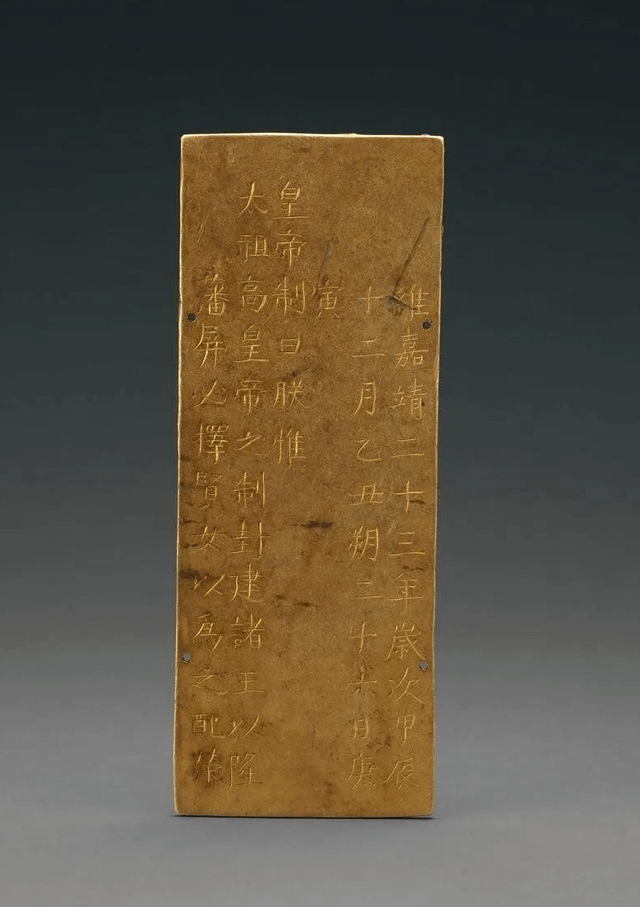 維嘉靖二十三年歲次甲辰
十二月乙丑朔二十六日庚
寅
皇帝制曰朕惟
太祖高皇帝之制封建諸王以隆
藩屏必擇賢女以為之配